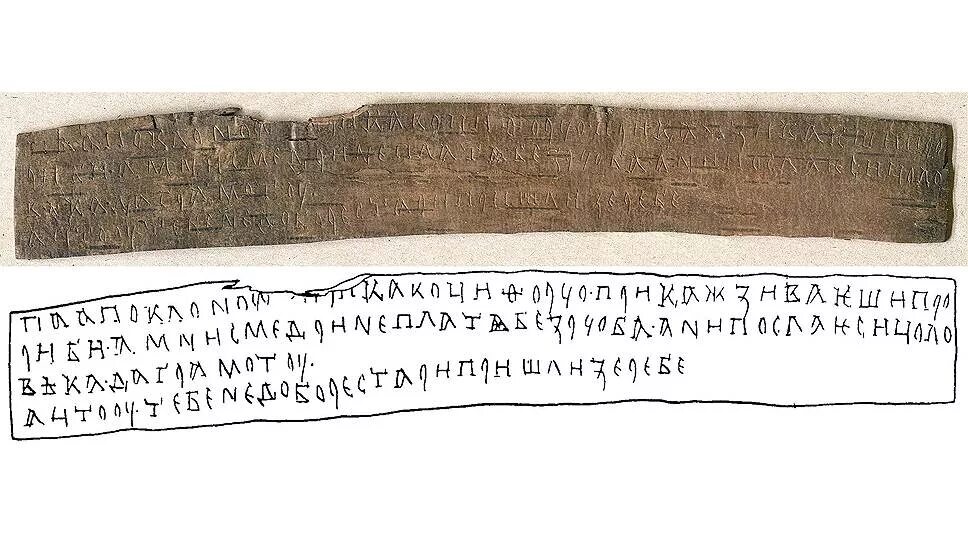 ПААПОКЛОНОѾ КАКОЦИФОРУО·ПРИКАЖЗИВАѤШИПРО
РИБИ·А·МНИСМЕРДИНЕПЛАТѦБЕЗРУОБА·АНИПОСЛАѤСИЦОЛО
ВѢКА·ДАГРАМОТОУ·
АЦТООУ·ТЕБЕНЕДОБОРЕСТАРИПРИШЛИЗЕРЕБЕ